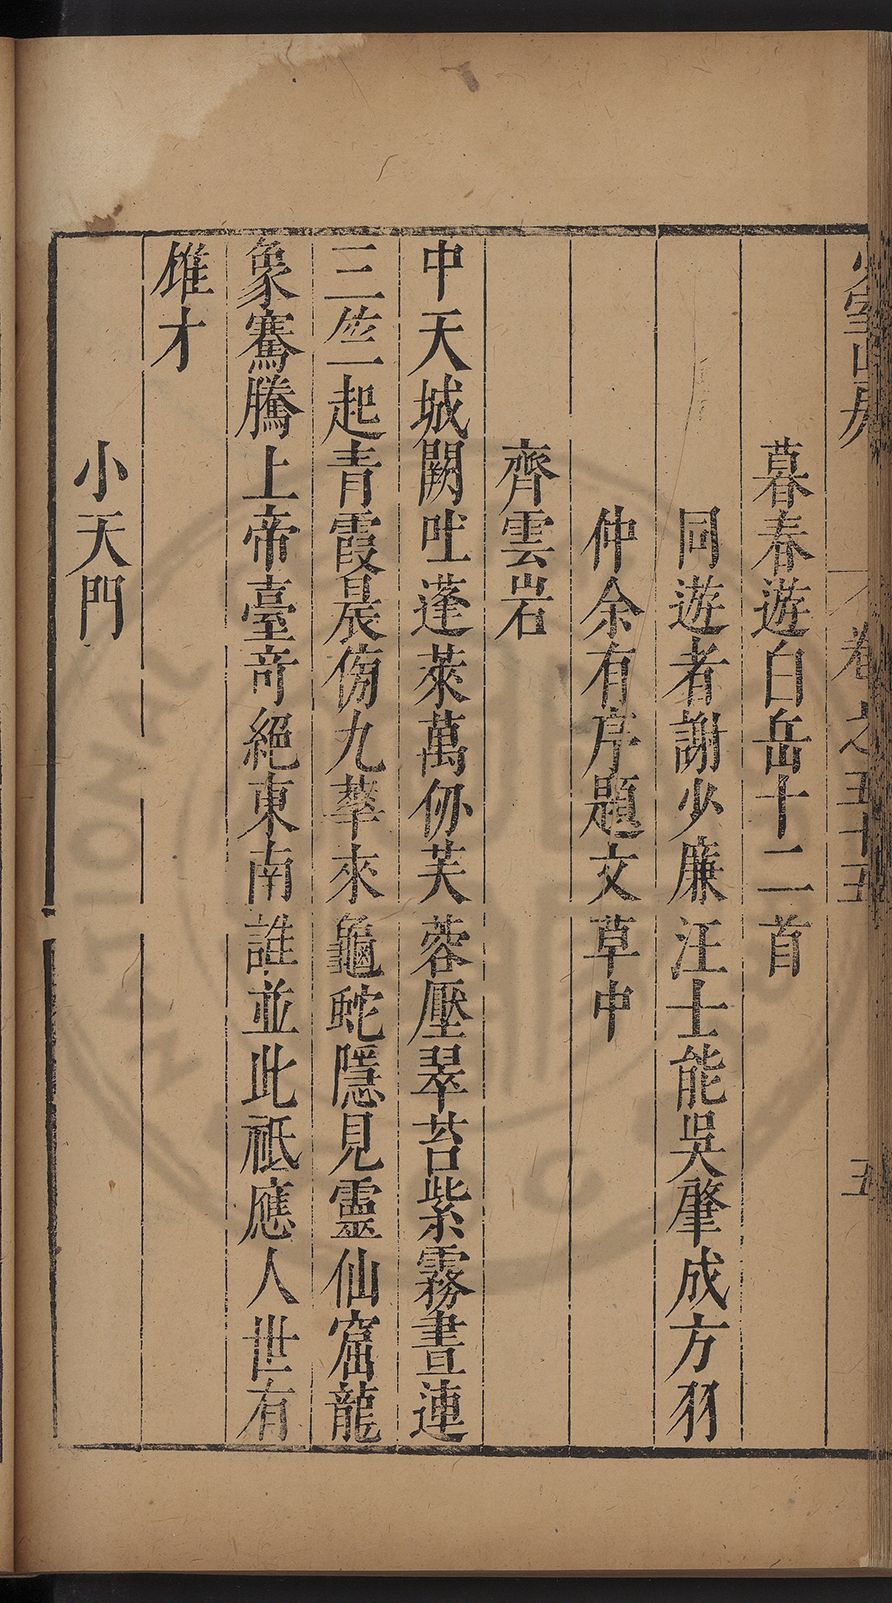 少室山房 卷之五十五 五
暮春遊白岳十二首
同遊者謝少廉汪士能吳肇成方羽
仲余有序題文草中
齊雲岩
中天城闕吐蓬萊萬仞芙蓉壓翠苔紫霧晝連
三竺起青霞晨傍九華來龜蛇隱見靈仙窟龍
象騫騰上帝臺奇絕東南誰並此祗應人世有
雄才
小天門